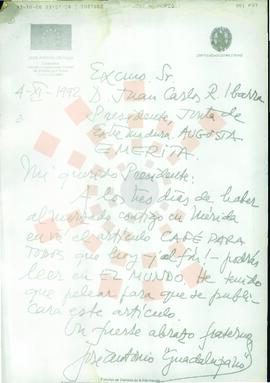 Excmo. Sr.
4-XI-1992 D. Juan Carlos R. Ibarra
Presidente, Junta de
Extremadura. AUGUSTA
EMERITA.
Mi querido Presidente:
A los tres días de haber
almorzado contigo en Mérida
envié el artículo CAFÉ PARA
TODOS que hoy ¡al fin! podrás
leer en EL MUNDO. He tenido
que pelear para que se publi-
cara este artículo.
Un fuerte abrazo fraterno
José Antonio "Guadalupano"